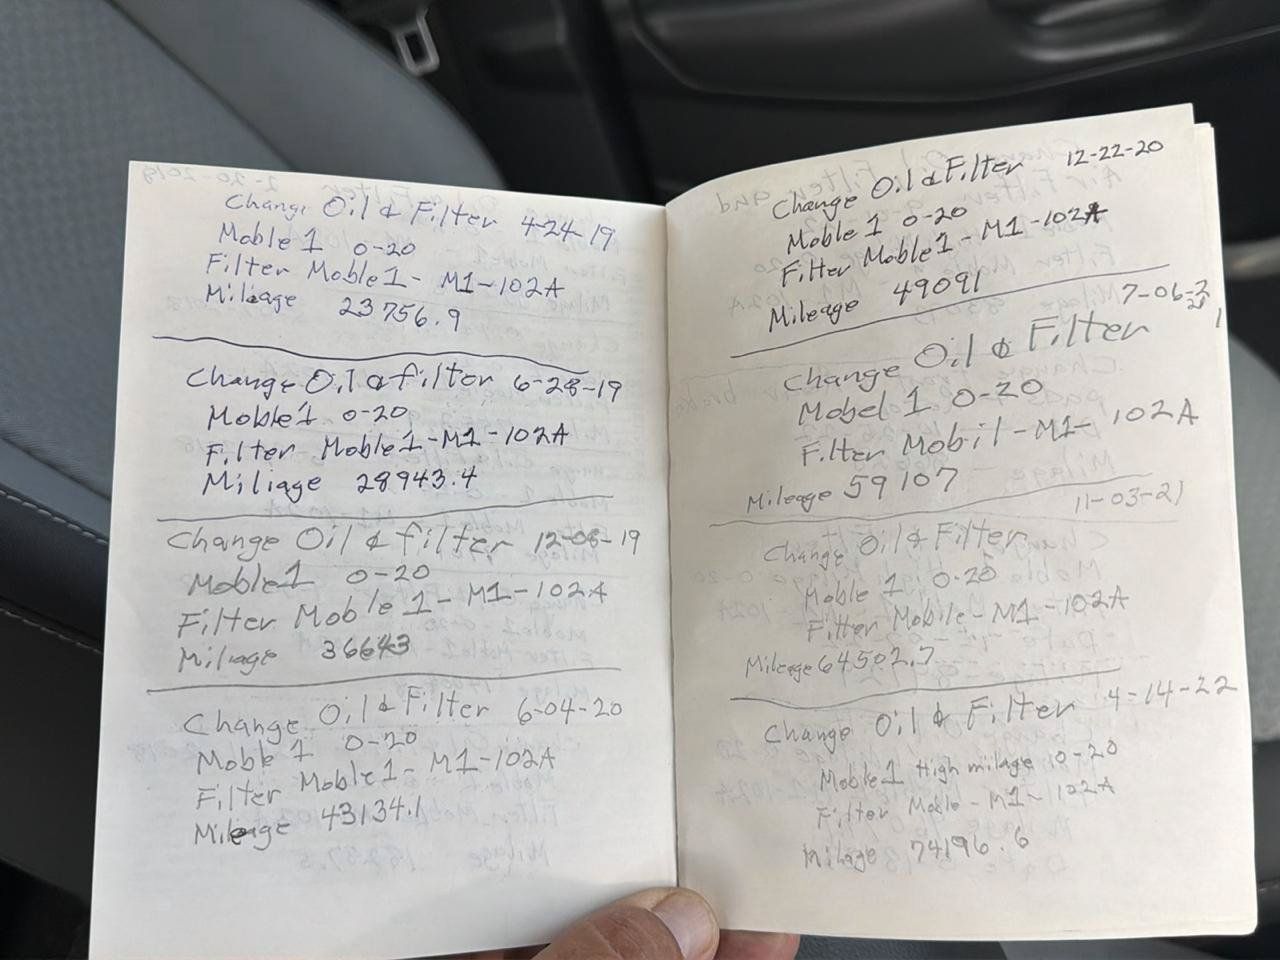 Change Oil & Filter 4-24-19
Moble 1 0-20
Filter Moble 1 - M1-102A
Mileage 23756.9
Change Oil & filter 6-28-19
Moble 1 0-20
Filter Moble 1 - M1-102A
Miliage 28943.4
Change Oil & filter 12-08-19
Moble 1 0-20
Filter Moble 1 - M1-102A
Miliage 36643
Change Oil & Filter 6-04-20
Moble 1 0-20
Filter Moble 1 - M1-102A
Mileage 43134.1
Change Oil & Filter 12-22-20
Moble 1 0-20
Filter Moble 1 - M1-102A
Mileage 49091
7-06-21
Change Oil & Filter
Mobel 1 0-20
Filter Mobil - M1- 102A
Mileage 59107
11-03-21
Change Oil & Filter
Moble 1 0-20
Filter Mobile - M1-102A
Mileage 64502.7
Change Oil & Filter 4-14-22
Moble 1 High milage 0-20
Filter Moble - M1- 102A
Milage 74196.6